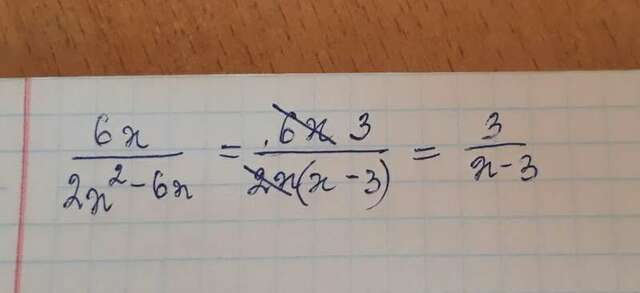 6x/(2x²-6x) = 6x 3/(2x(x-3)) = 3/(x-3)